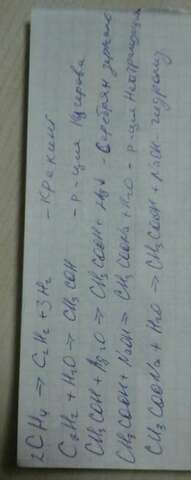 2CH4 → C2H2 + 3H2 - крекинг
C2H2 + H2O → CH3 COH - р-ция Кучерова
CH3 COH + Ag2O → CH3 COOH + Ag↓ - Серебрян зеркало
CH3COOH + NaOH → CH3 COONa + H2O - р-ция Нейтрализации
CH3 COONa + H2O → CH3COOH + NaOH - гидролиз